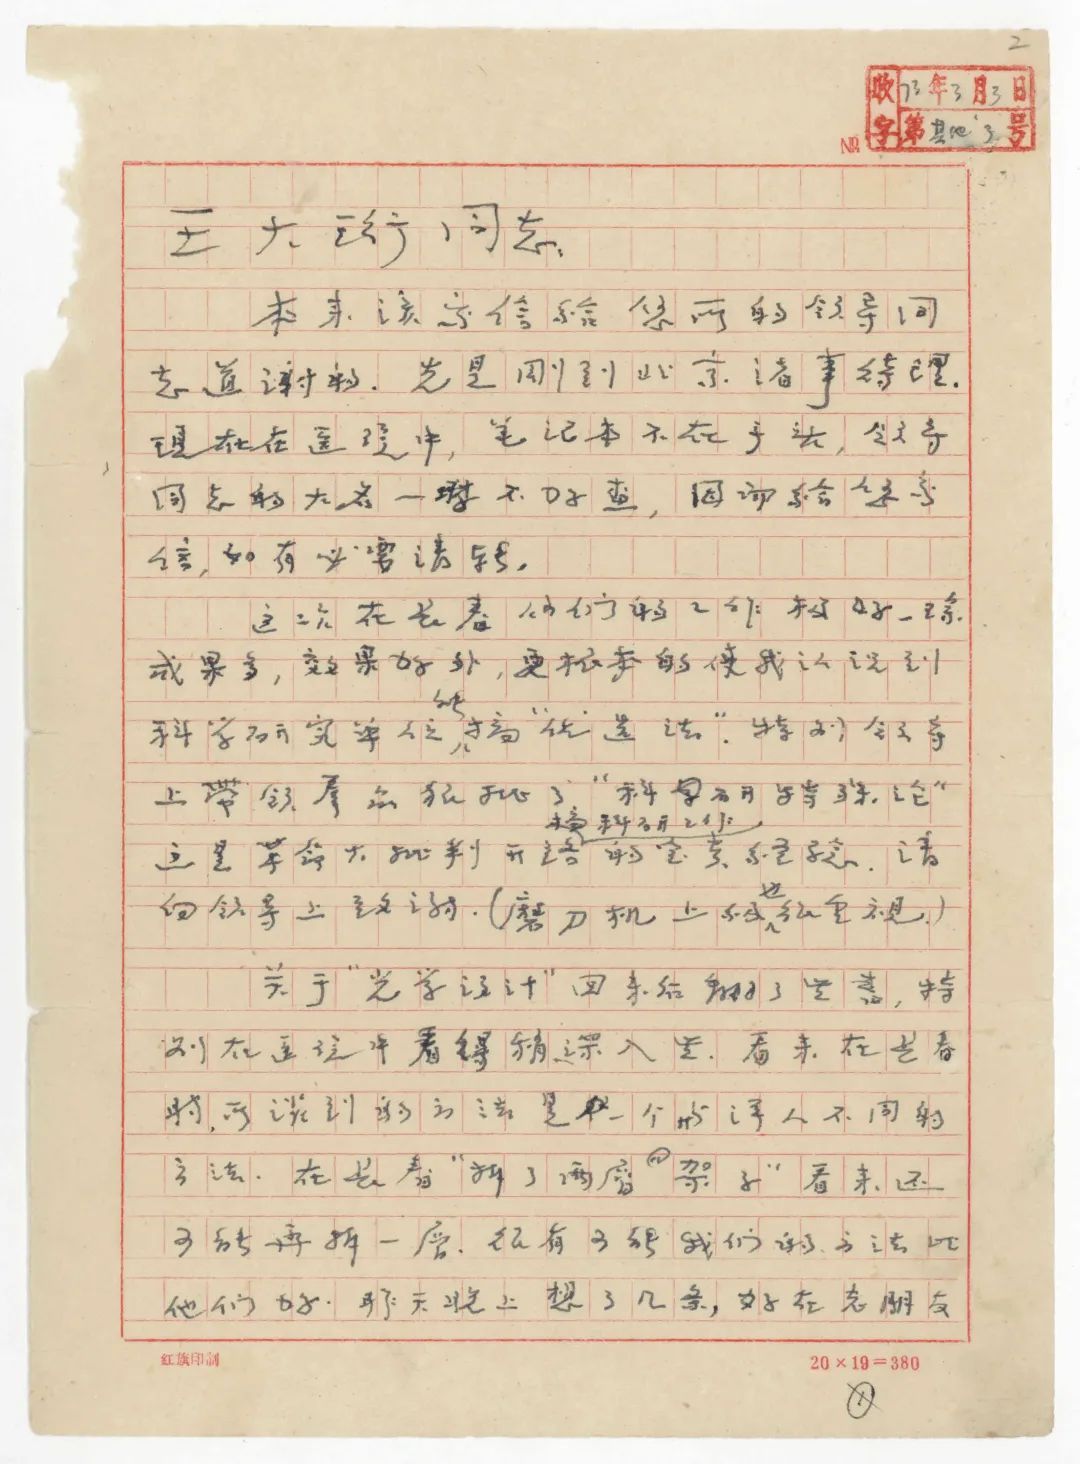 2
收 73年3月3日
字 第其他3号
№
王大珩同志：
本来该写信给您所的领导同
志道谢的．先是刚到北京诸事待理．
现在在医院中，笔记本不在手头，领导
同志的大名一时不好查，因而给您写
信，如有必要请转．
这次在长春他们的工作极好．除
成果多，效果好外，更根本的使我认识到
科学研究单位能搞“优选法”．特别领导
上带领群众狠批了“科研特殊论”
这是革命大批判开路搞科研工作的宝贵经验．请
向领导上致谢．（磨刀机上级也很重视．）
关于“光学设计”回来后翻了些书，特
别在医院中看得稍深入些．看来在长春
时，所谈到的方法是一个与洋人不同的
方法．在长春“拆了两层架子”看来还
可能再拆一层．很有可能我们的方法比
他们好．那天晚上想了几条，好在老朋友
红旗印制
20×19=380
①